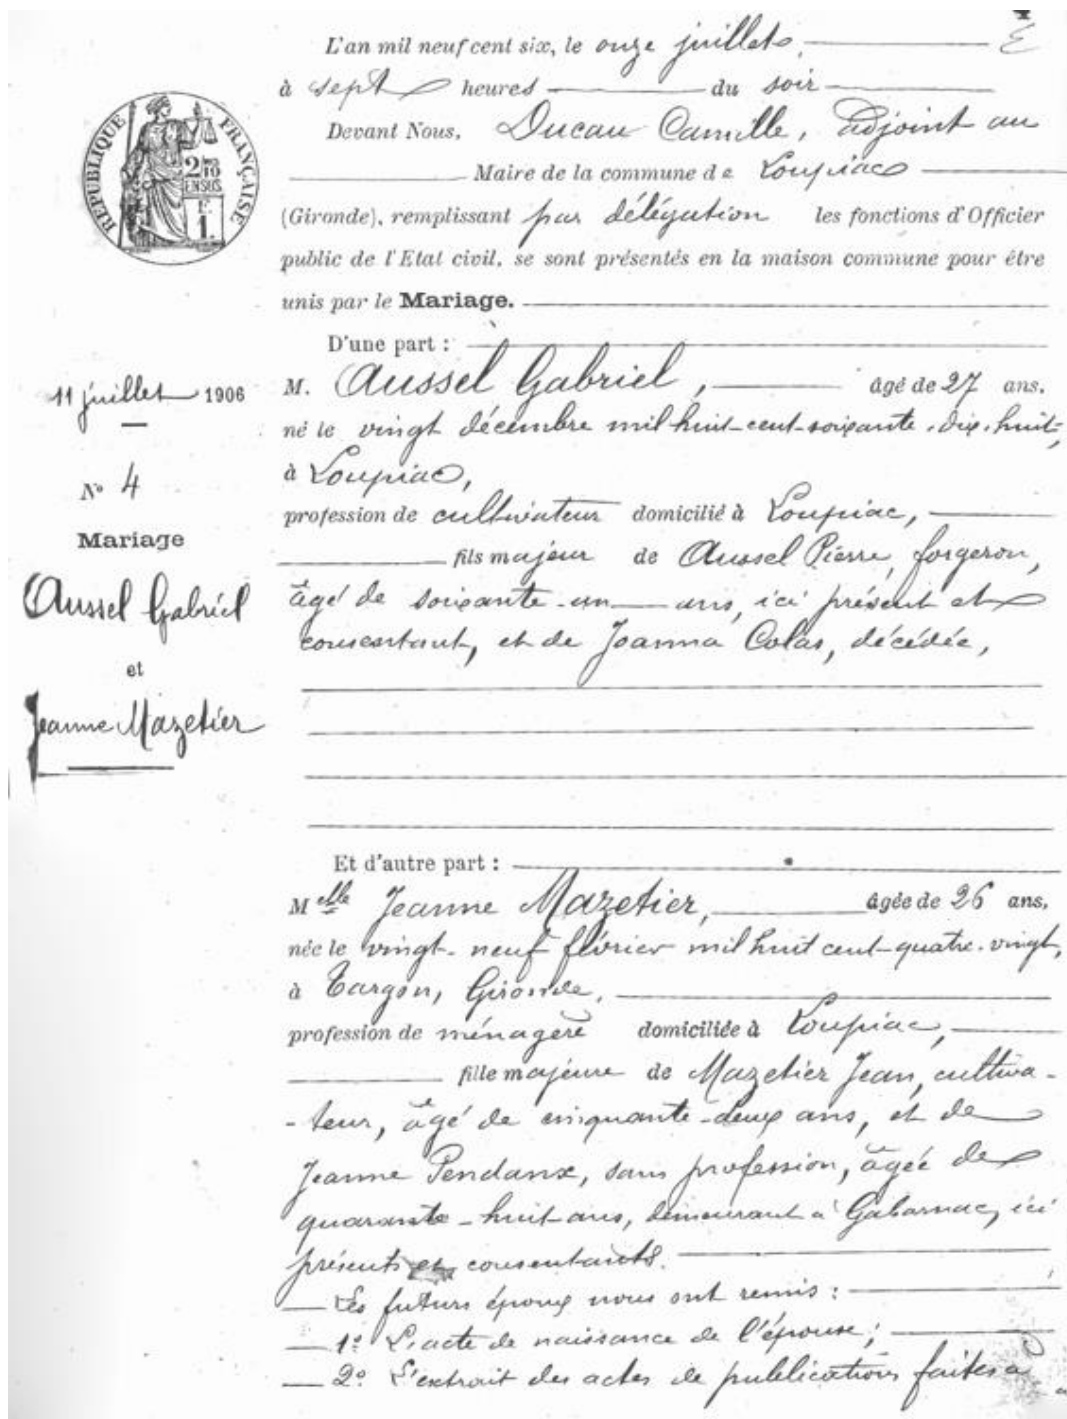 L'an mil neuf cent six, le onze juillet,
à sept heures du soir
Devant Nous, Ducau Camille, adjoint au
Maire de la commune de Loupiac
(Gironde), remplissant par délégation les fonctions d'Officier
public de l'Etat civil, se sont présentés en la maison commune pour être
unis par le Mariage.
RÉPUBLIQUE FRANÇAISE
2/10
EN SUS
1.
D'une part :
11 juillet 1906
N° 4
Mariage
Aussel Gabriel
et
Jeanne Mazetier
M. Aussel Gabriel, âgé de 27 ans,
né le vingt décembre mil huit-cent-soixante-dix-huit,
à Loupiac,
profession de cultivateur domicilié à Loupiac,
fils majeur de Aussel Pierre, forgeron,
âgé de soixante-un ans, ici présent et
consentant, et de Joanna Colas, décédée,
Et d'autre part :
M elle Jeanne Mazetier, âgée de 26 ans,
née le vingt-neuf février mil huit cent-quatre-vingt,
à Targon, Gironde,
profession de ménagère domiciliée à Loupiac,
fille majeure de Mazetier Jean, cultiva-
-teur, âgé de cinquante-deux ans, et de
Jeanne Pendanx, sans profession, âgée de
quarante-huit-ans, demeurant à Gabarnac, ici
présents et consentants.
Les futurs époux nous ont remis :
1° L'acte de naissance de l'épouse ;
2° L'extrait des actes de publications faites à